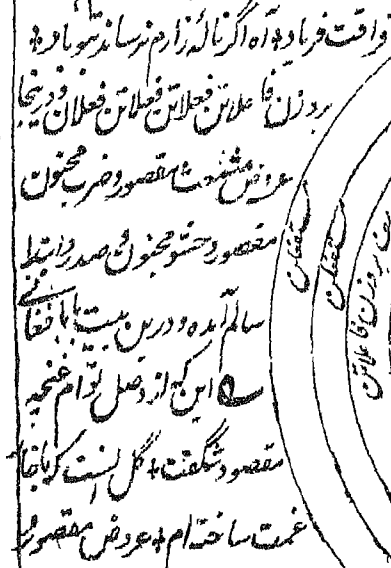 واقت فریاد + آه اگر نالهٔ زارم نرساند بتو باد +
بر وزن فاعلاتن فعلاتن فعلاتن فعلان و درینجا
عروض مشعث مقصور و ضرب مخبون
مقصور و حشو مخبون و صدر و ابتدا
سالم آمده و درین بیت بابا فغانی
این که از وصل توام غنچه
مقصود شگفت + گل انست که با خار
غمت ساخته ام + عروض مقصور و
بر وزن فاعلاتن